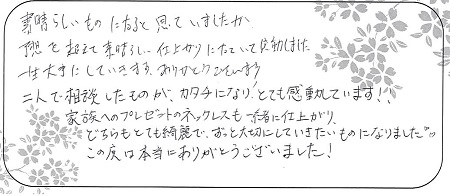 素晴らしいものになると思っていましたが
予想を超えて素晴らしい仕上がりになっていて感動しました
一生大事にしていきます。ありがとうございます!
二人で相談したものが、カタチになり、とても感動しています!!
家族へのプレゼントのネックレスも素敵に仕上がり、
どちらもとても綺麗で、ずっと大切にしていきたいものになりました
この度は本当にありがとうございました!